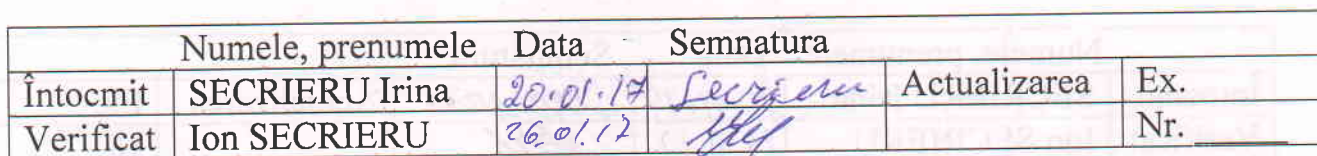 Numele, prenumele Data Semnatura
Întocmit SECRIERU Irina 20.01.17 Secrieru Actualizarea Ex.
Verificat Ion SECRIERU 26.01.17 Nr.